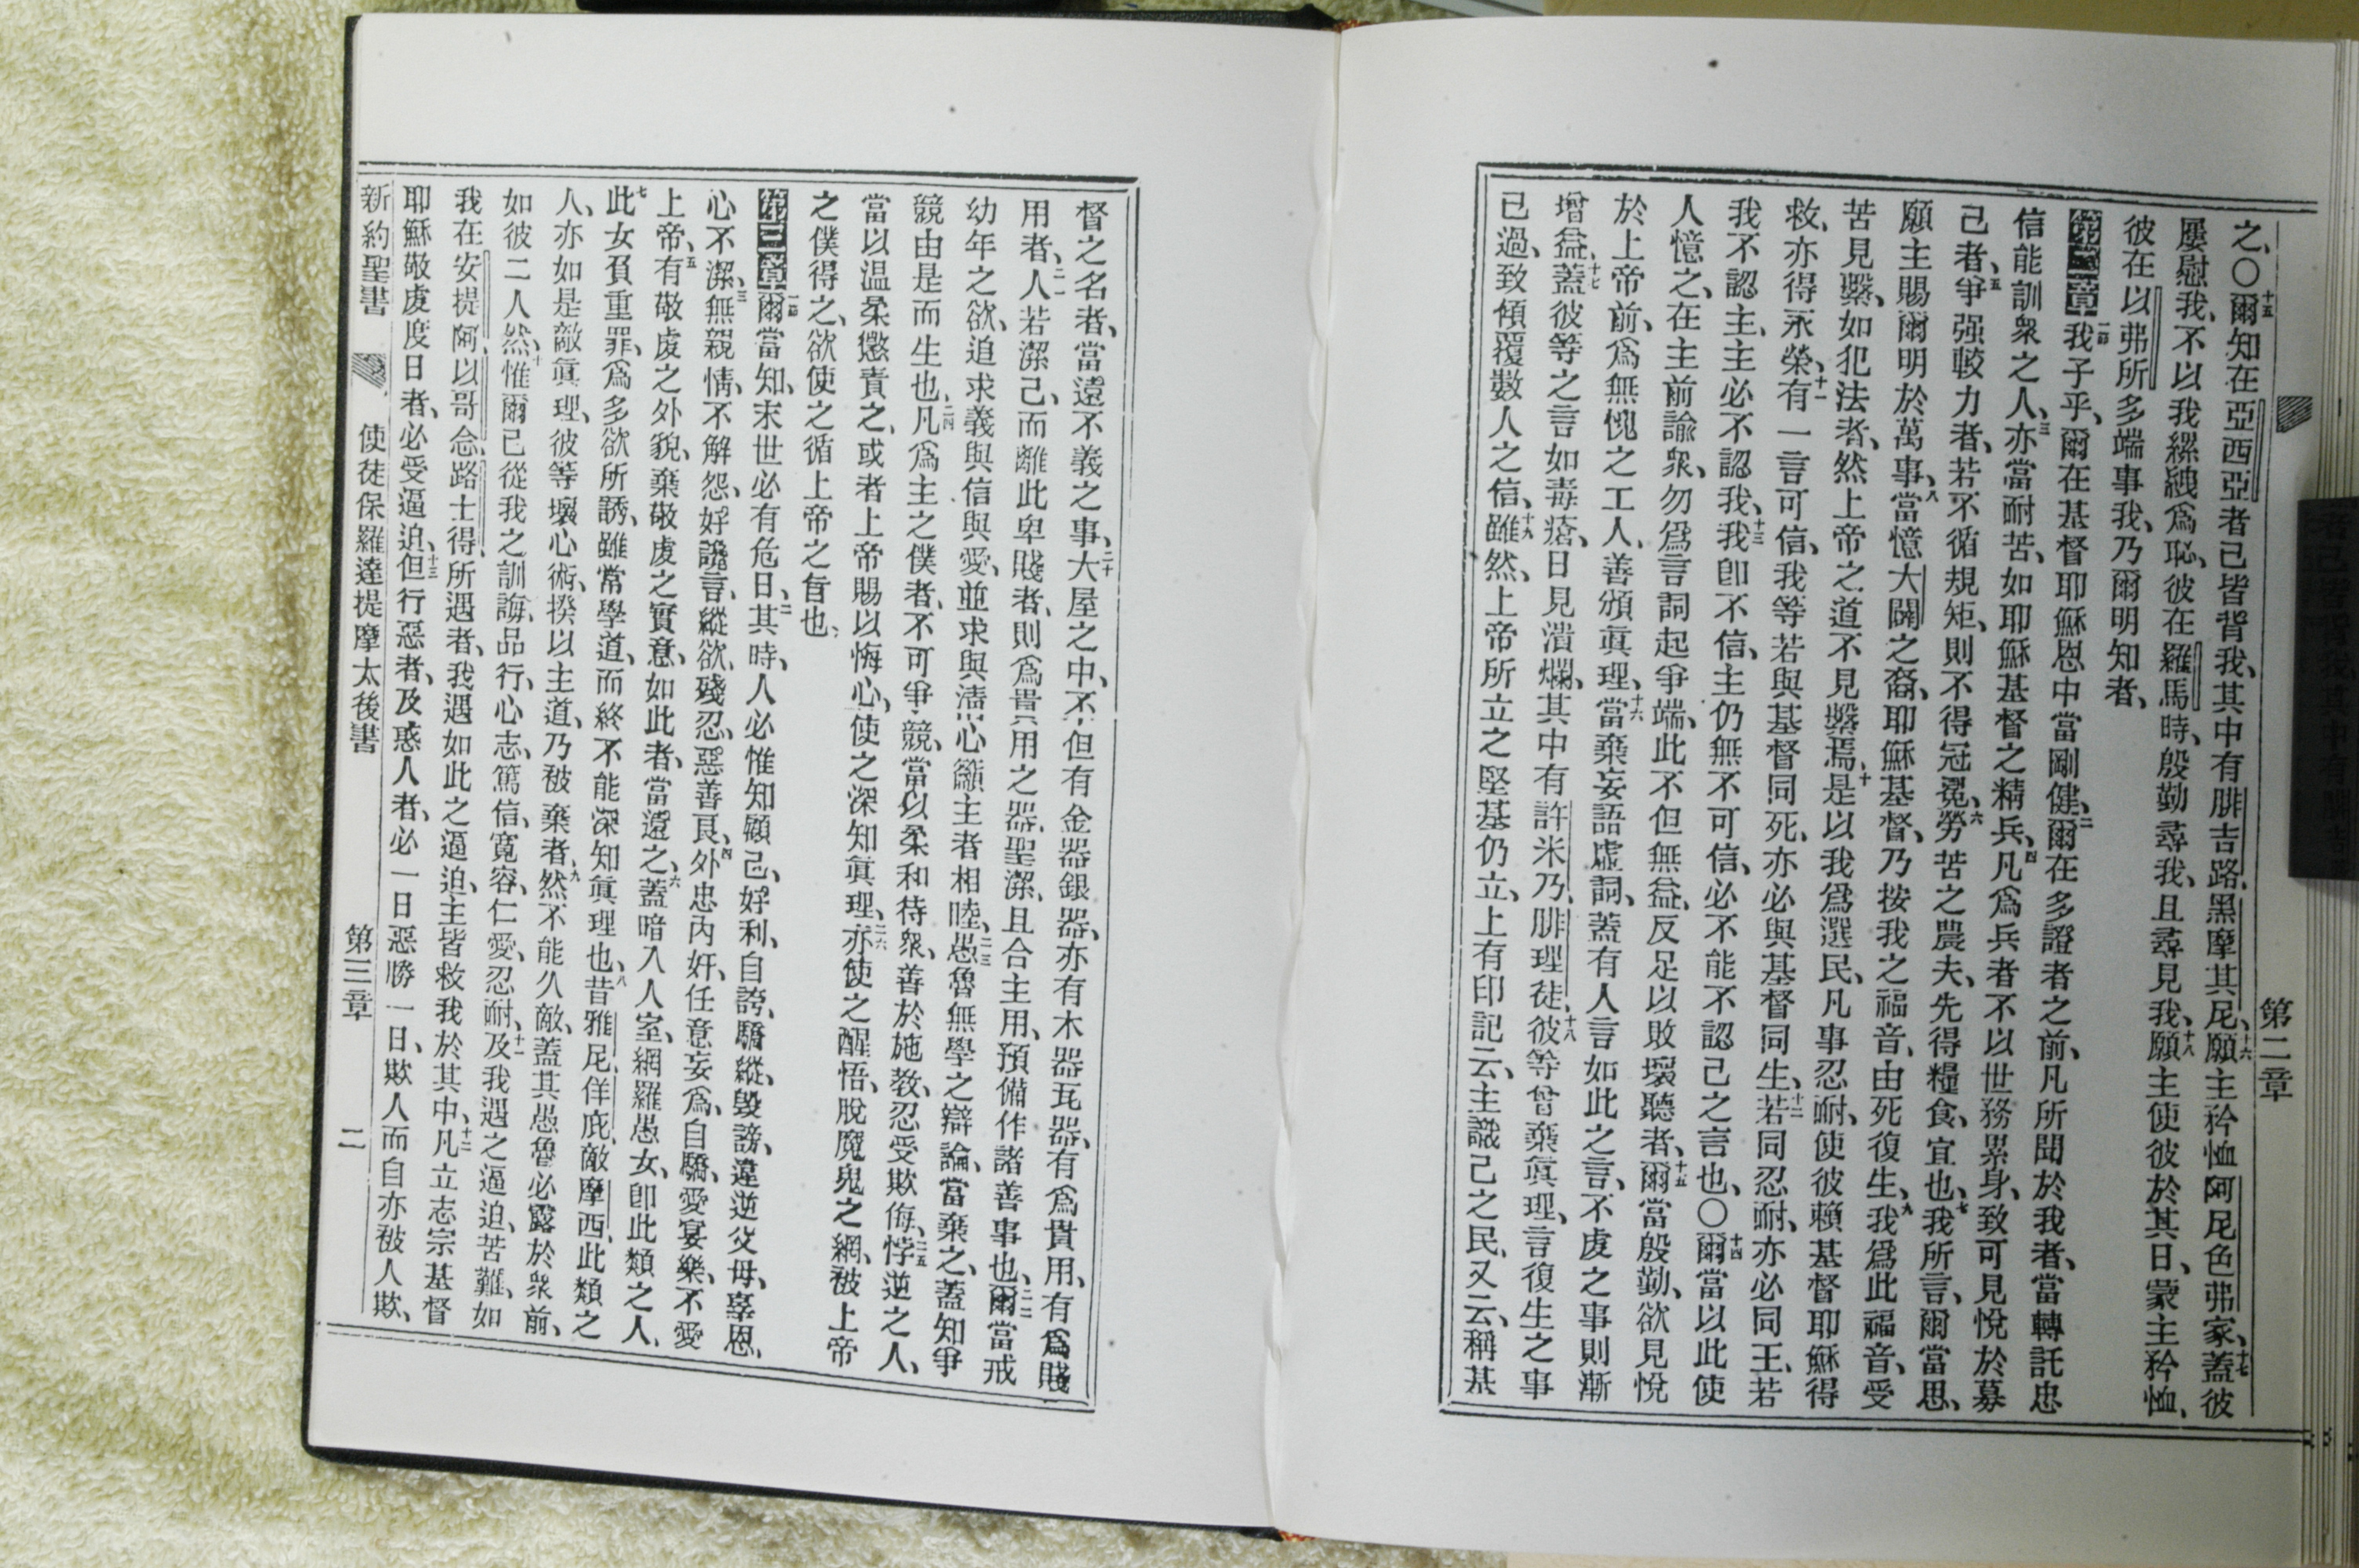 第二章
之、〇十五爾知在亞西亞者已皆背我、其中有腓吉路、黑摩其尼、十六願主矜恤阿尼色弗家、十七蓋彼
屢慰我、不以我縲絏爲恥、彼在羅馬時、殷勤尋我、且尋見我、十八願主使彼於其日、蒙主矜恤、
彼在以弗所多端事我、乃爾明知者、
第二章一節我子乎、爾在基督耶穌恩中當剛健、二爾在多證者之前、凡所聞於我者、當轉託忠
信能訓衆之人、三亦當耐苦、如耶穌基督之精兵、四凡爲兵者不以世務累身、致可見悅於募
己者、五爭强較力者、若不循規矩、則不得冠冕、六勞苦之農夫、先得糧食、宜也、七我所言、爾當思、
願主賜爾明於萬事、八當憶大闢之裔、耶穌基督、乃按我之福音、由死復生、九我爲此福音、受
苦見繫、如犯法者、然上帝之道不見繫焉、十是以我爲選民、凡事忍耐、使彼賴基督耶穌得
救、亦得永榮、十一有一言可信、我等若與基督同死、亦必與基督同生、十二若同忍耐、亦必同王、若
我不認主、主必不認我、十三我卽不信、主仍無不可信、必不能不認己之言也、〇十四爾當以此使
人憶之、在主前諭衆、勿爲言詞起爭端、此不但無益、反足以敗壞聽者、十五爾當殷勤、欲見悅
於上帝前、爲無愧之工人、善頒眞理、十六當棄妄語虛詞、蓋有人言如此之言、不虔之事則漸
增益、十七蓋彼等之言如毒瘡、日見潰爛、其中有許米乃、腓理徒、十八彼等曾棄眞理、言復生之事
已過、致傾覆數人之信、十九雖然、上帝所立之堅基仍立、上有印記云、主識己之民、又云、稱基
督之名者、當遠不義之事、二十大屋之中、不但有金器銀器、亦有木器瓦器、有爲貴用、有爲賤
用者、二一人若潔己、而離此卑賤者、則爲貴用之器、聖潔、且合主用、預備作諸善事也、二二爾當戒
幼年之欲、追求義與信與愛、並求與淸心籲主者相睦、二三愚魯無學之辯論、當棄之、蓋知爭
競由是而生也、二四凡爲主之僕者、不可爭競、當以柔和待衆、善於施敎、忍受欺侮、二五悖逆之人、
當以温柔懲責之、或者上帝賜以悔心、使之深知眞理、二六亦使之醒悟、脫魔鬼之網、被上帝
之僕得之、欲使之循上帝之旨也、
第三章一節爾當知、末世必有危日、二其時、人必惟知顧己、好利、自誇、驕縱、毀謗、違逆父母、辜恩、
心不潔、三無親情、不解怨、好讒言、縱欲、殘忍、惡善良、四外忠內奸、任意妄爲、自驕、愛宴樂、不愛
上帝、五有敬虔之外貌、棄敬虔之實意、如此者、當遠之、六蓋暗入人室、網羅愚女、卽此類之人、
七此女負重罪、爲多欲所誘、雖常學道、而終不能深知眞理也、八昔雅尼、佯庇、敵摩西、此類之
人、亦如是敵眞理、彼等壞心術、揆以主道、乃被棄者、九然不能久敵、蓋其愚魯必露於衆前、
如彼二人然、十惟爾已從我之訓誨、品行、心志、篤信、寬容、仁愛、忍耐、十一及我遇之逼迫、苦難、如
我在安提阿、以哥念、路士得、所遇者、我遇如此之逼迫、主皆救我於其中、十二凡立志宗基督
耶穌敬虔度日者、必受逼迫、十三但行惡者、及惑人者、必一日惡勝一日、欺人而自亦被人欺、
新約聖書 使徒保羅達提摩太後書 第三章 二